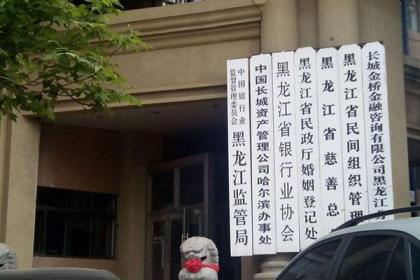 中国银行业
监督管理委员会
黑龙江监管局
中国长城资产管理公司哈尔滨办事处
黑龙江省银行业协会
黑龙江省民政厅婚姻登记处
黑龙江省慈善总
黑龙江省民间组织管理
长城金桥金融咨询有限公司黑龙江